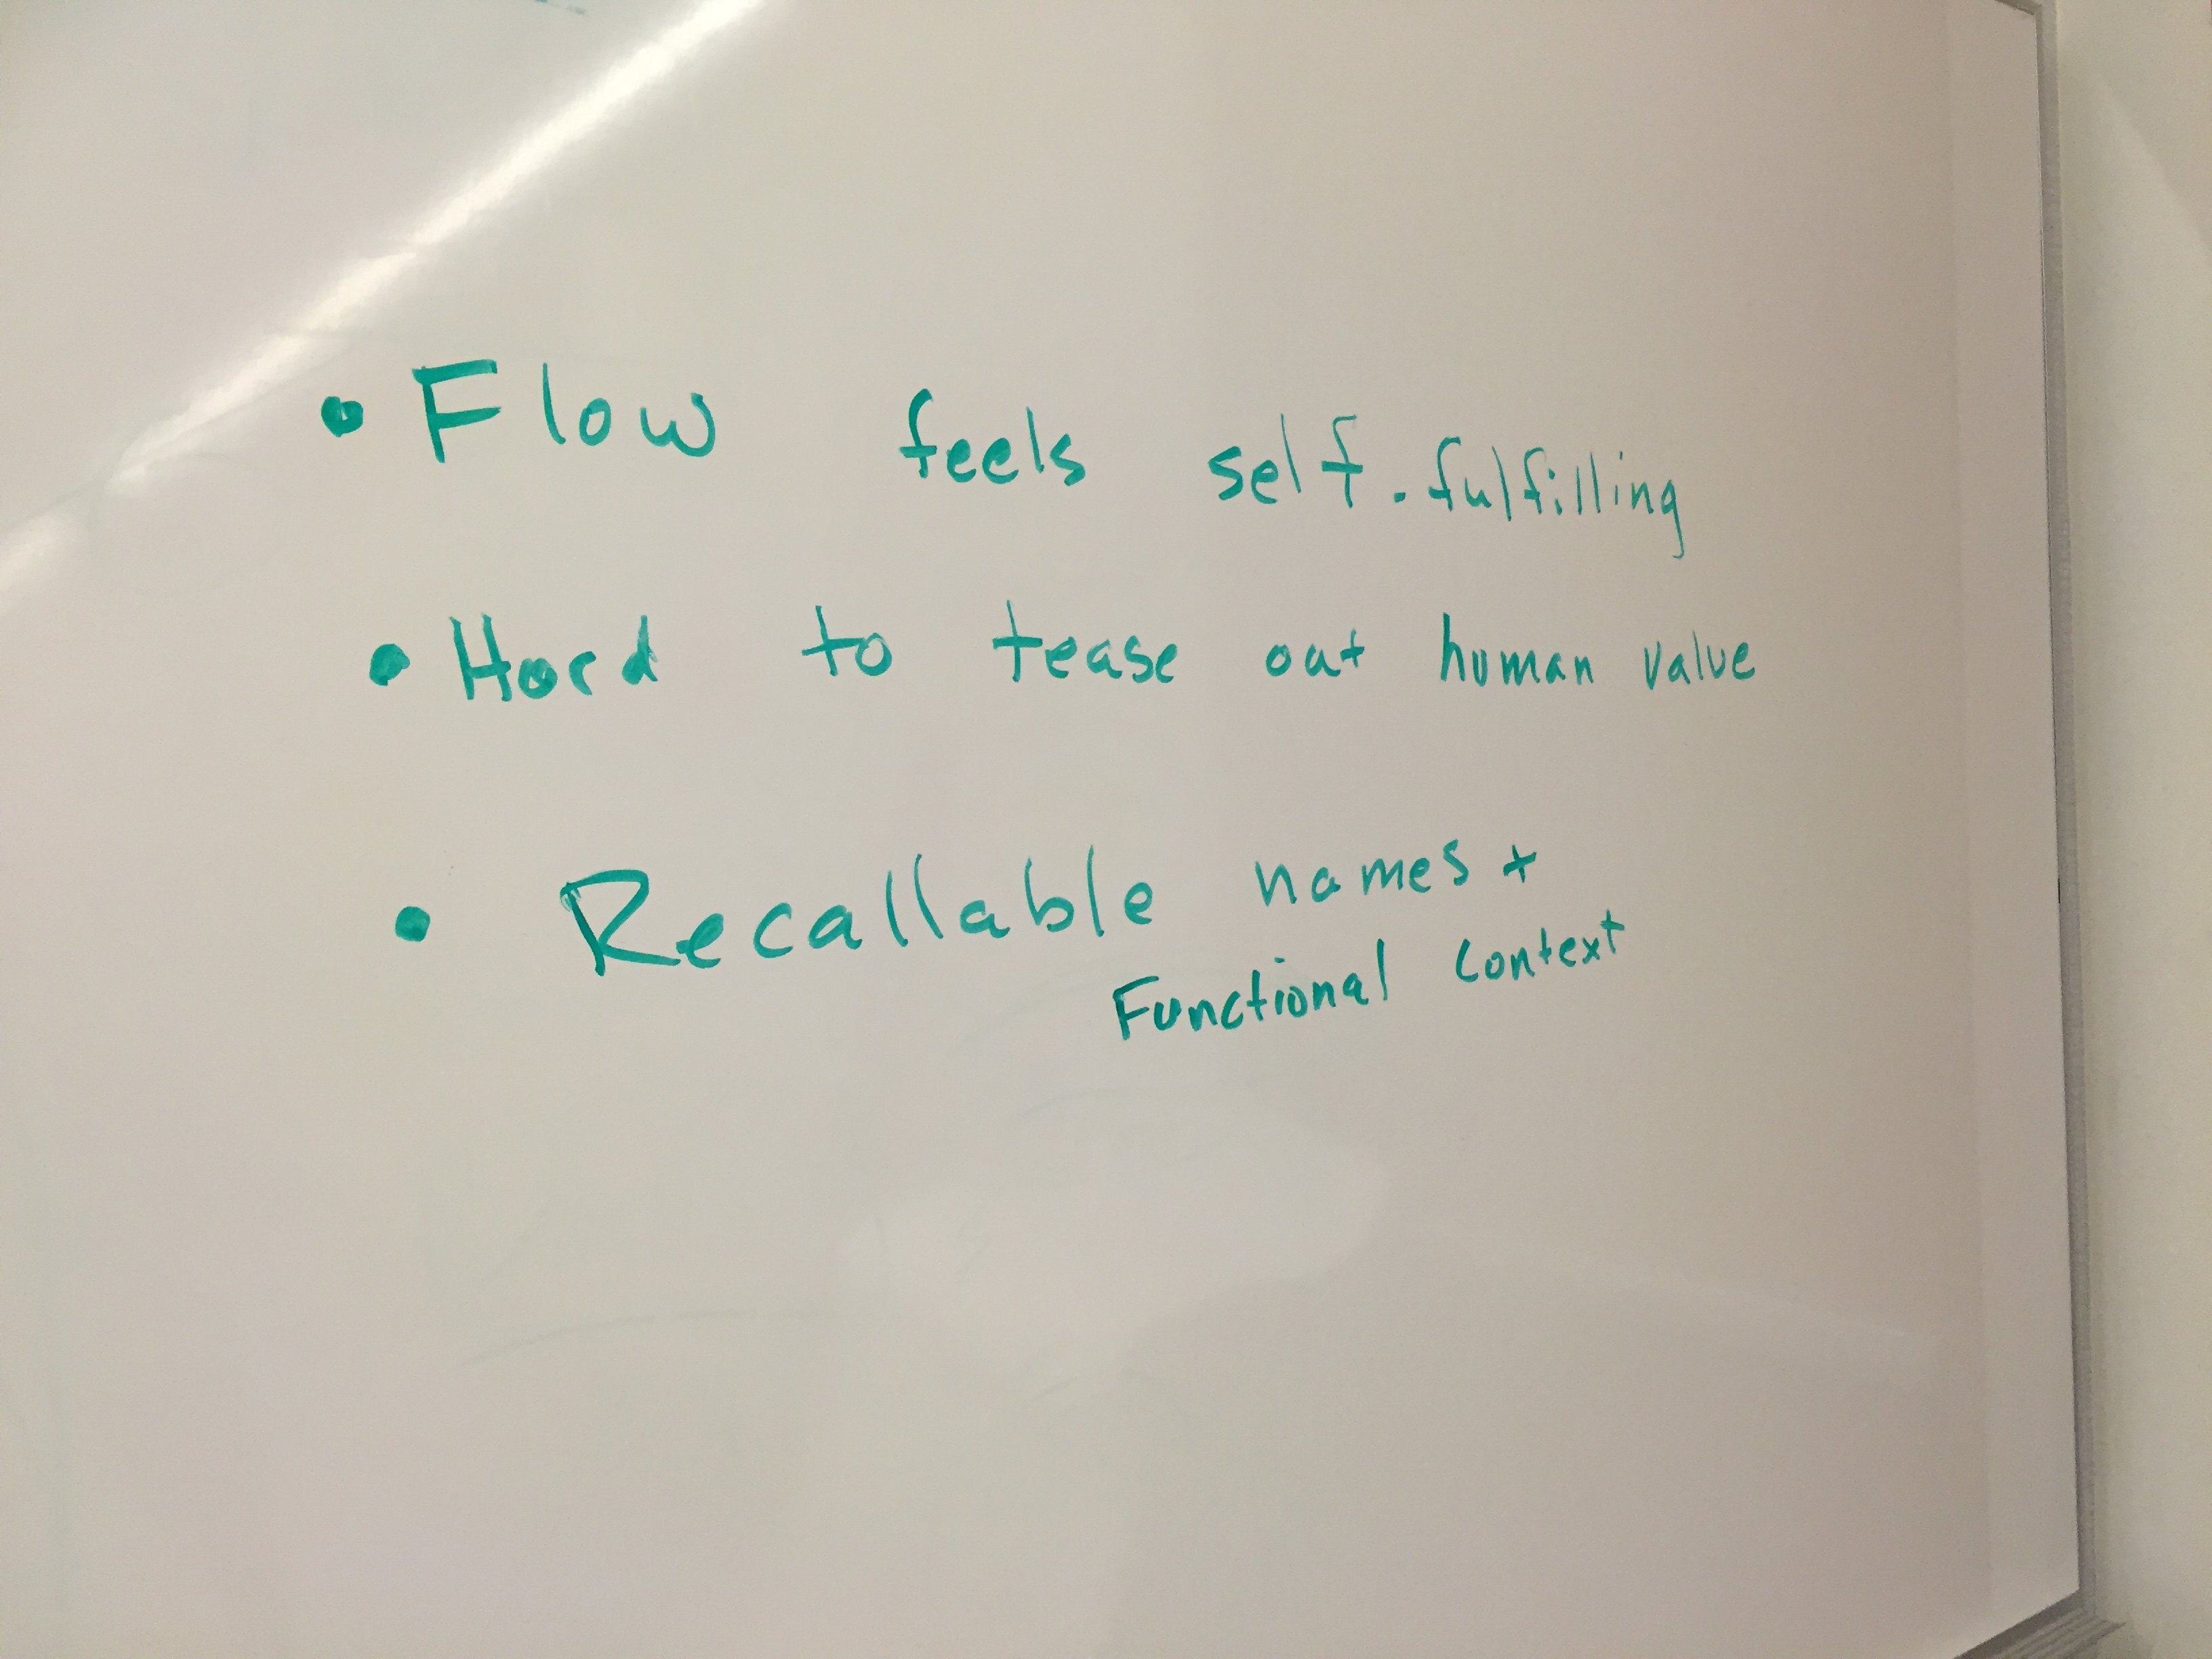 • Flow feels self-fulfilling
• Hard to tease out human value
• Recallable names +
Functional context